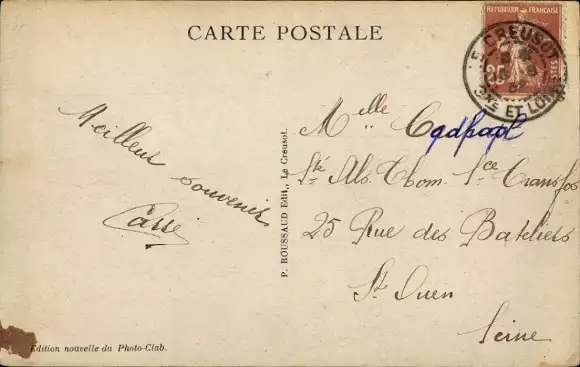 CARTE POSTALE
REPUBLIQUE FRANÇAISE
LE CREUSOT
SNE ET LOIRE
Meilleur
souvenir
P. ROUSSAUD Edit., Le Creusot.
Melle
Sté Als. Thom. Sce Transfos
25 Rue des Bateliers
St Ouen
Seine
Edition nouvelle du Photo-Club.